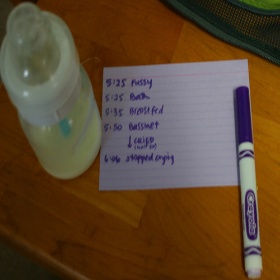 5:25 Fussy
5:25 Bath
5:35 Breastfed
5:50 Bassinet
↓ cried
6:06 stopped crying
Crayola